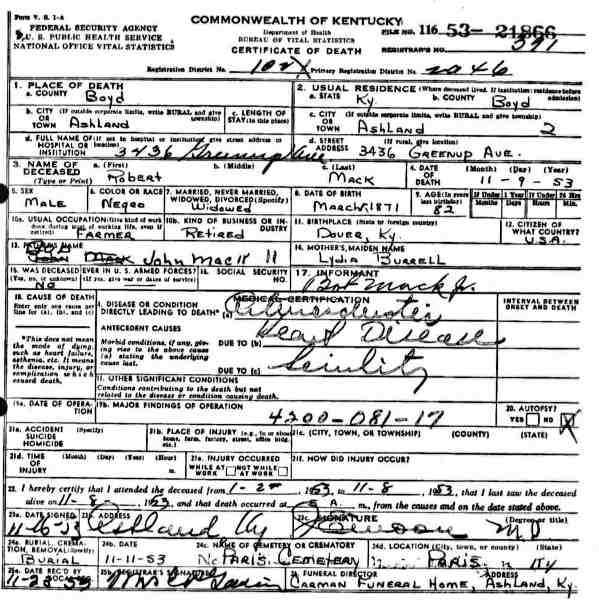 Form V. S. 1-A
FEDERAL SECURITY AGENCY
U. S. PUBLIC HEALTH SERVICE
NATIONAL OFFICE VITAL STATISTICS
COMMONWEALTH OF KENTUCKY
Department of Health
BUREAU OF VITAL STATISTICS
CERTIFICATE OF DEATH
FILE NO. 116 53-21866
REGISTRAR'S NO. 391
Registration District No. Primary Registration District No. 2046
1. PLACE OF DEATH
a. COUNTY Boyd
2. USUAL RESIDENCE (Where deceased lived. If institution: residence before admission)
a. STATE Ky. b. COUNTY Boyd
b. CITY (If outside corporate limits, write RURAL and give township)
OR TOWN Ashland
c. LENGTH OF STAY (in this place)
c. CITY (If outside corporate limits, write RURAL and give township)
OR TOWN Ashland 2
d. FULL NAME OF (If not in hospital or institution, give street address or location)
HOSPITAL OR INSTITUTION 3436 Greenup Ave
d. STREET (If rural, give location)
ADDRESS 3436 Greenup Ave.
3. NAME OF DECEASED (Type or Print)
a. (First) Robert
b. (Middle)
c. (Last) Mack
4. DATE OF DEATH (Month) (Day) (Year)
11-9-53
5. SEX Male
6. COLOR OR RACE Negro
7. MARRIED, NEVER MARRIED, WIDOWED, DIVORCED (Specify)
Widowed
8. DATE OF BIRTH
March 1871
9. AGE (In years last birthday) 82
If Under 1 Year Months Days
If Under 24 Hrs. Hours Min.
10a. USUAL OCCUPATION (Give kind of work done during most of working life, even if retired)
Farmer
10b. KIND OF BUSINESS OR INDUSTRY
Retired
11. BIRTHPLACE (State or foreign country)
Dover, Ky.
12. CITIZEN OF WHAT COUNTRY?
U.S.A.
13. FATHER'S NAME
John Mack
14. MOTHER'S MAIDEN NAME
Lydia Burrell
15. WAS DECEASED EVER IN U. S. ARMED FORCES?
(Yes, no, or unknown) (If yes, give war or dates of service)
No
16. SOCIAL SECURITY NO.
17. INFORMANT
Bob Mack Jr.
18. CAUSE OF DEATH
Enter only one cause per line for (a), (b), and (c)
*This does not mean the mode of dying, such as heart failure, asthenia, etc. It means the disease, injury, or complication which caused death.
MEDICAL CERTIFICATION
INTERVAL BETWEEN ONSET AND DEATH
I. DISEASE OR CONDITION DIRECTLY LEADING TO DEATH* (a)
ANTECEDENT CAUSES
Morbid conditions, if any, giving rise to the above cause (a) stating the underlying cause last.
DUE TO (b) Heart Disease
DUE TO (c)
II. OTHER SIGNIFICANT CONDITIONS
Conditions contributing to the death but not related to the disease or condition causing death.
19a. DATE OF OPERATION
19b. MAJOR FINDINGS OF OPERATION
4200-081-17
20. AUTOPSY?
YES NO X
21a. ACCIDENT SUICIDE HOMICIDE (Specify)
21b. PLACE OF INJURY (e.g., in or about home, farm, factory, street, office bldg., etc.)
21c. (CITY, TOWN, OR TOWNSHIP) (COUNTY) (STATE)
21d. TIME OF INJURY (Month) (Day) (Year) (Hour)
21e. INJURY OCCURRED
WHILE AT WORK NOT WHILE AT WORK
21f. HOW DID INJURY OCCUR?
22. I hereby certify that I attended the deceased from 1-2- 1953, to 11-8, 1953, that I last saw the deceased
alive on 11-8, 1953, and that death occurred at 5 A m., from the causes and on the date stated above.
23a. DATE SIGNED
23b. ADDRESS Ashland Ky
23c. SIGNATURE (Degree or title)
M.D
24a. BURIAL, CREMATION, REMOVAL (Specify)
Burial
24b. DATE
11-11-53
24c. NAME OF CEMETERY OR CREMATORY
Paris Cemetery
24d. LOCATION (City, town, or county) (State)
Paris Ky
25a. DATE REC'D BY LOCAL REG.
25b. REGISTRAR'S SIGNATURE
25. FUNERAL DIRECTOR ADDRESS
Carman Funeral Home, Ashland, Ky.